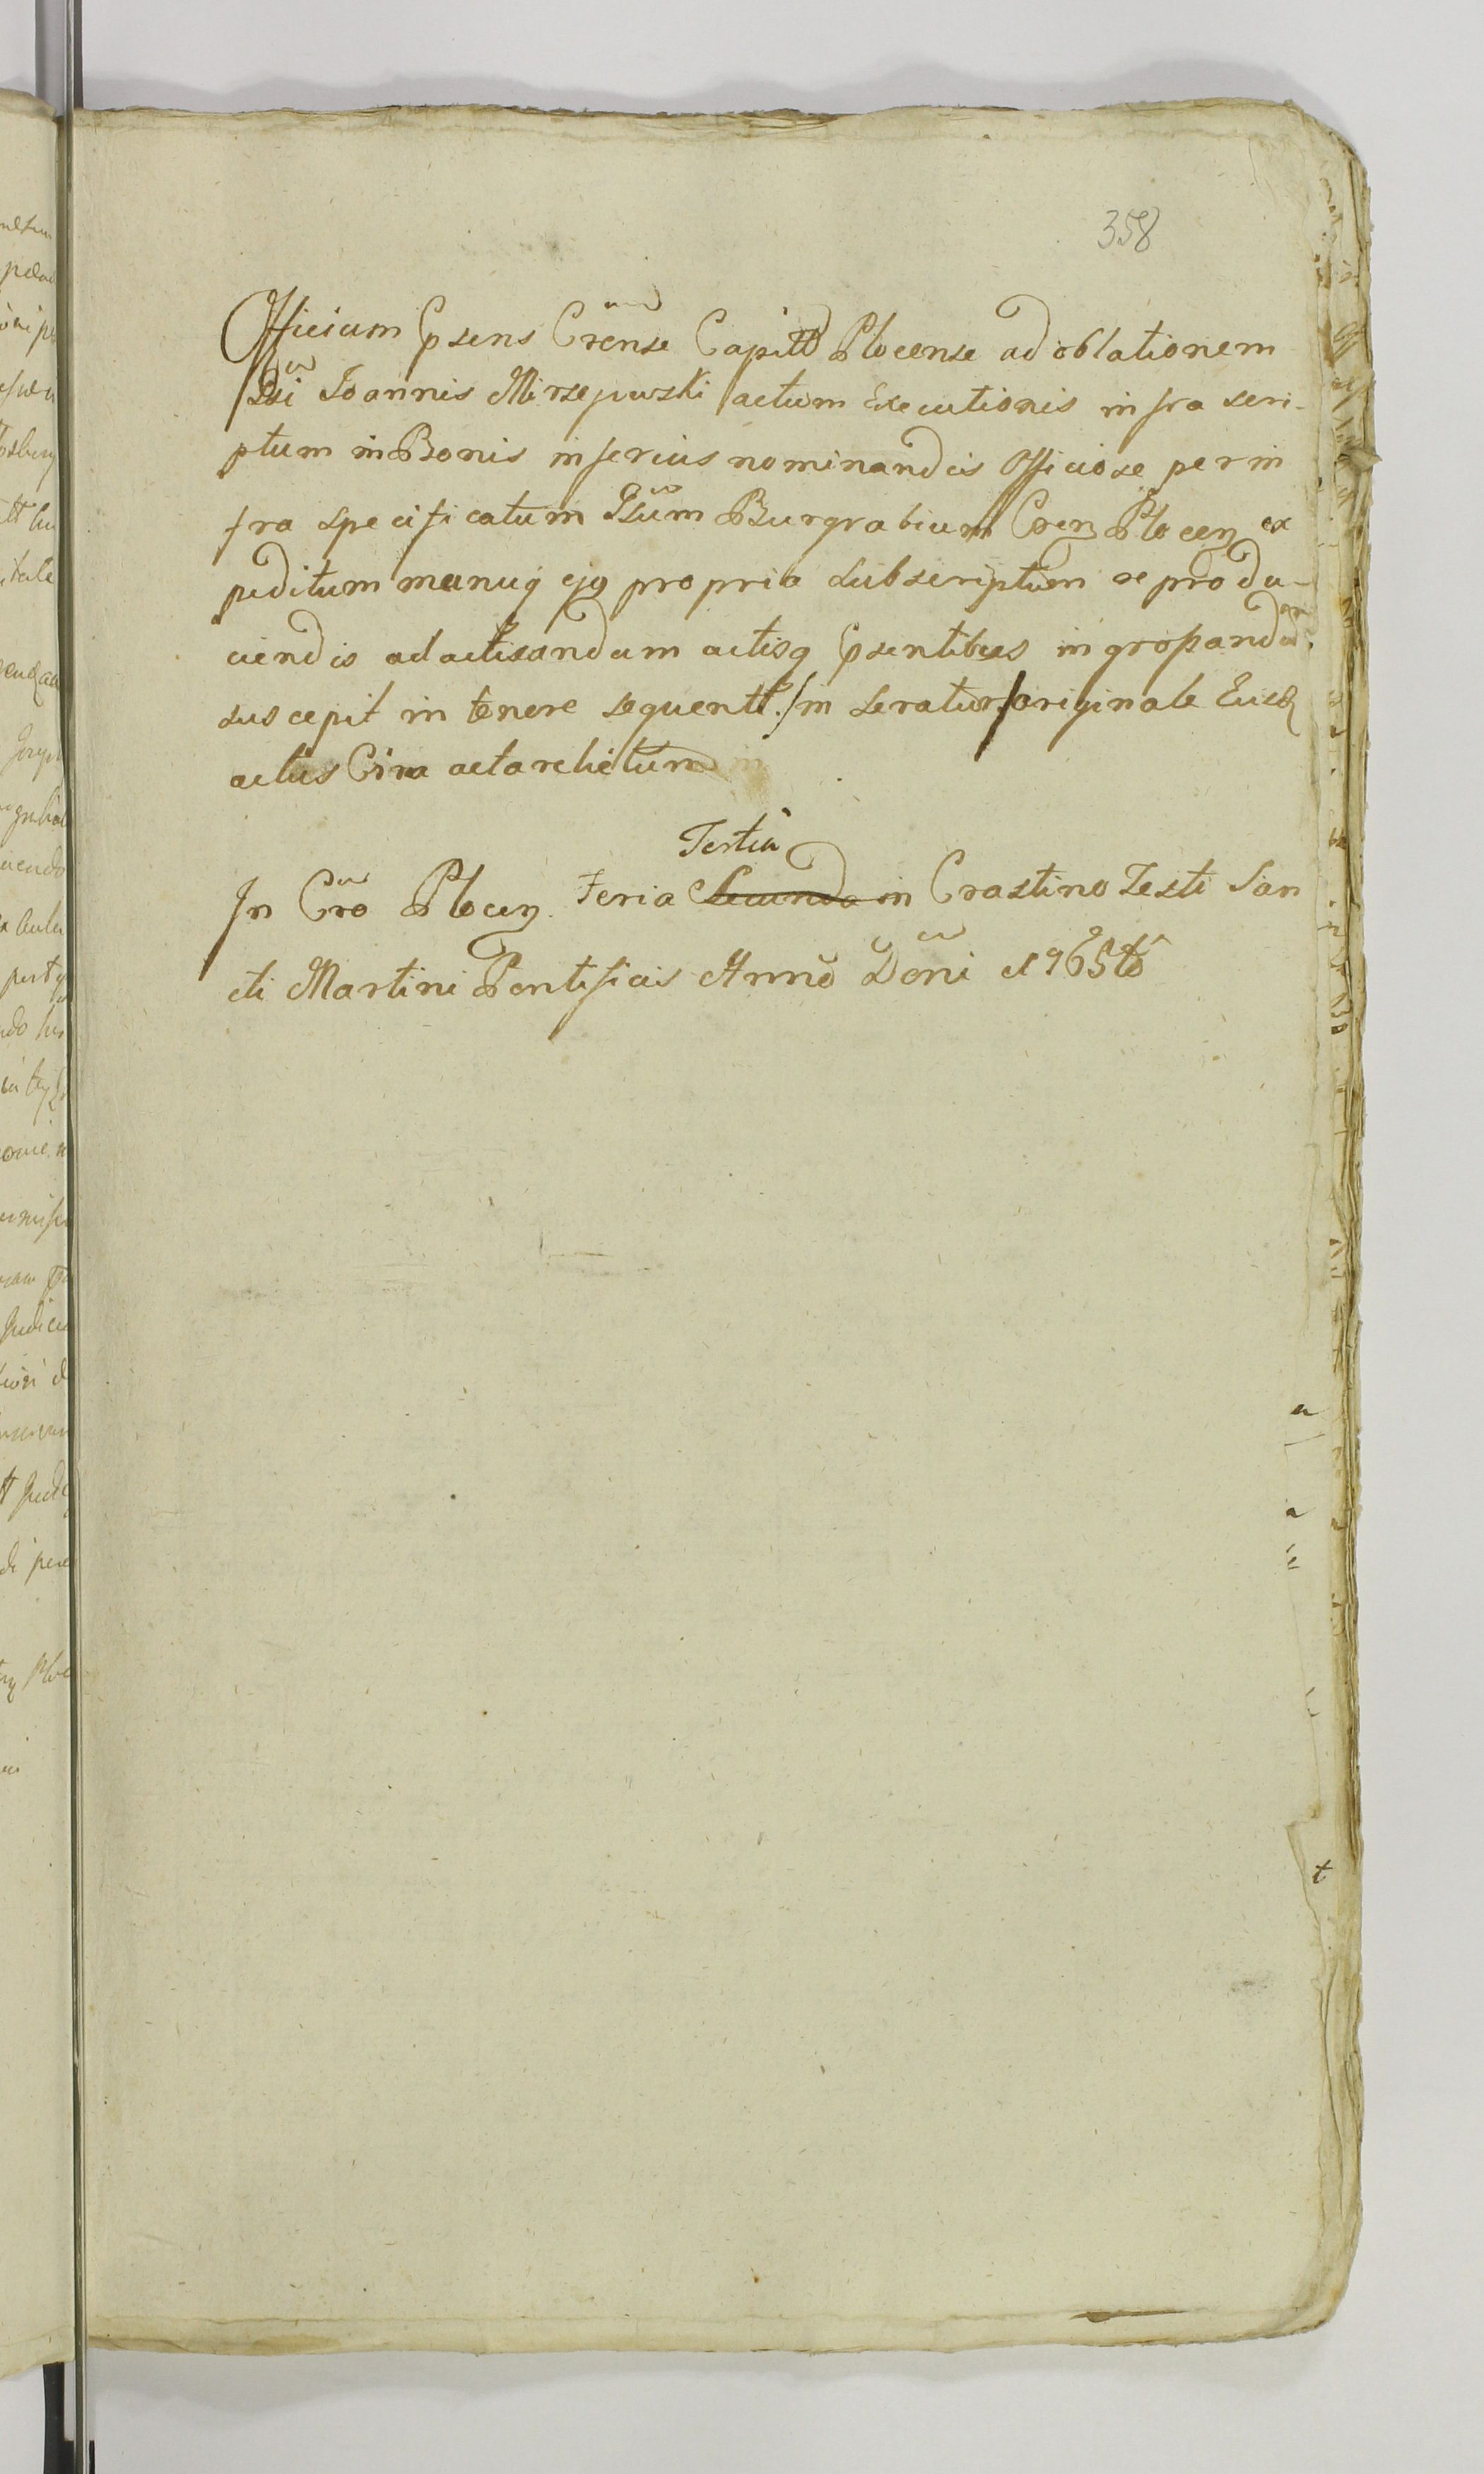 358
Officium Psens Crense Capitt Plocense ad oblationem
Psi Joannis Mirzejewski actum Executionis infra scri-
ptum in Bonis inferius nominandis Officiose per in
fra specificatum Psum Burgrabium Cren Plocen ex
peditum manuq ejq propria subscriptum se produ-
ciendis ad acticandum actisq Psentibus ingrossandum
suscepit in tenore sequenti /: inseratur :/ originale Eusd
actus Cira acta relictum
Tertia
In Cro Plocen Feria Secunda in Crastino Festi San
cti Martini Pontificis Anno Dñi 1765to